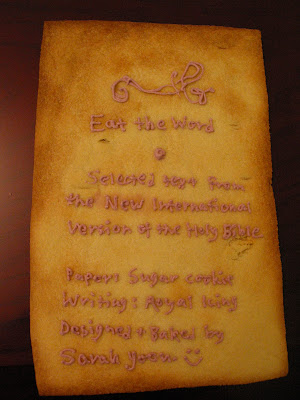 Eat the Word
Selected text from
the New International
Version of the Holy Bible
Paper: Sugar cookie
Writing: Royal Icing
Designed + Baked by
Sarah Yoon